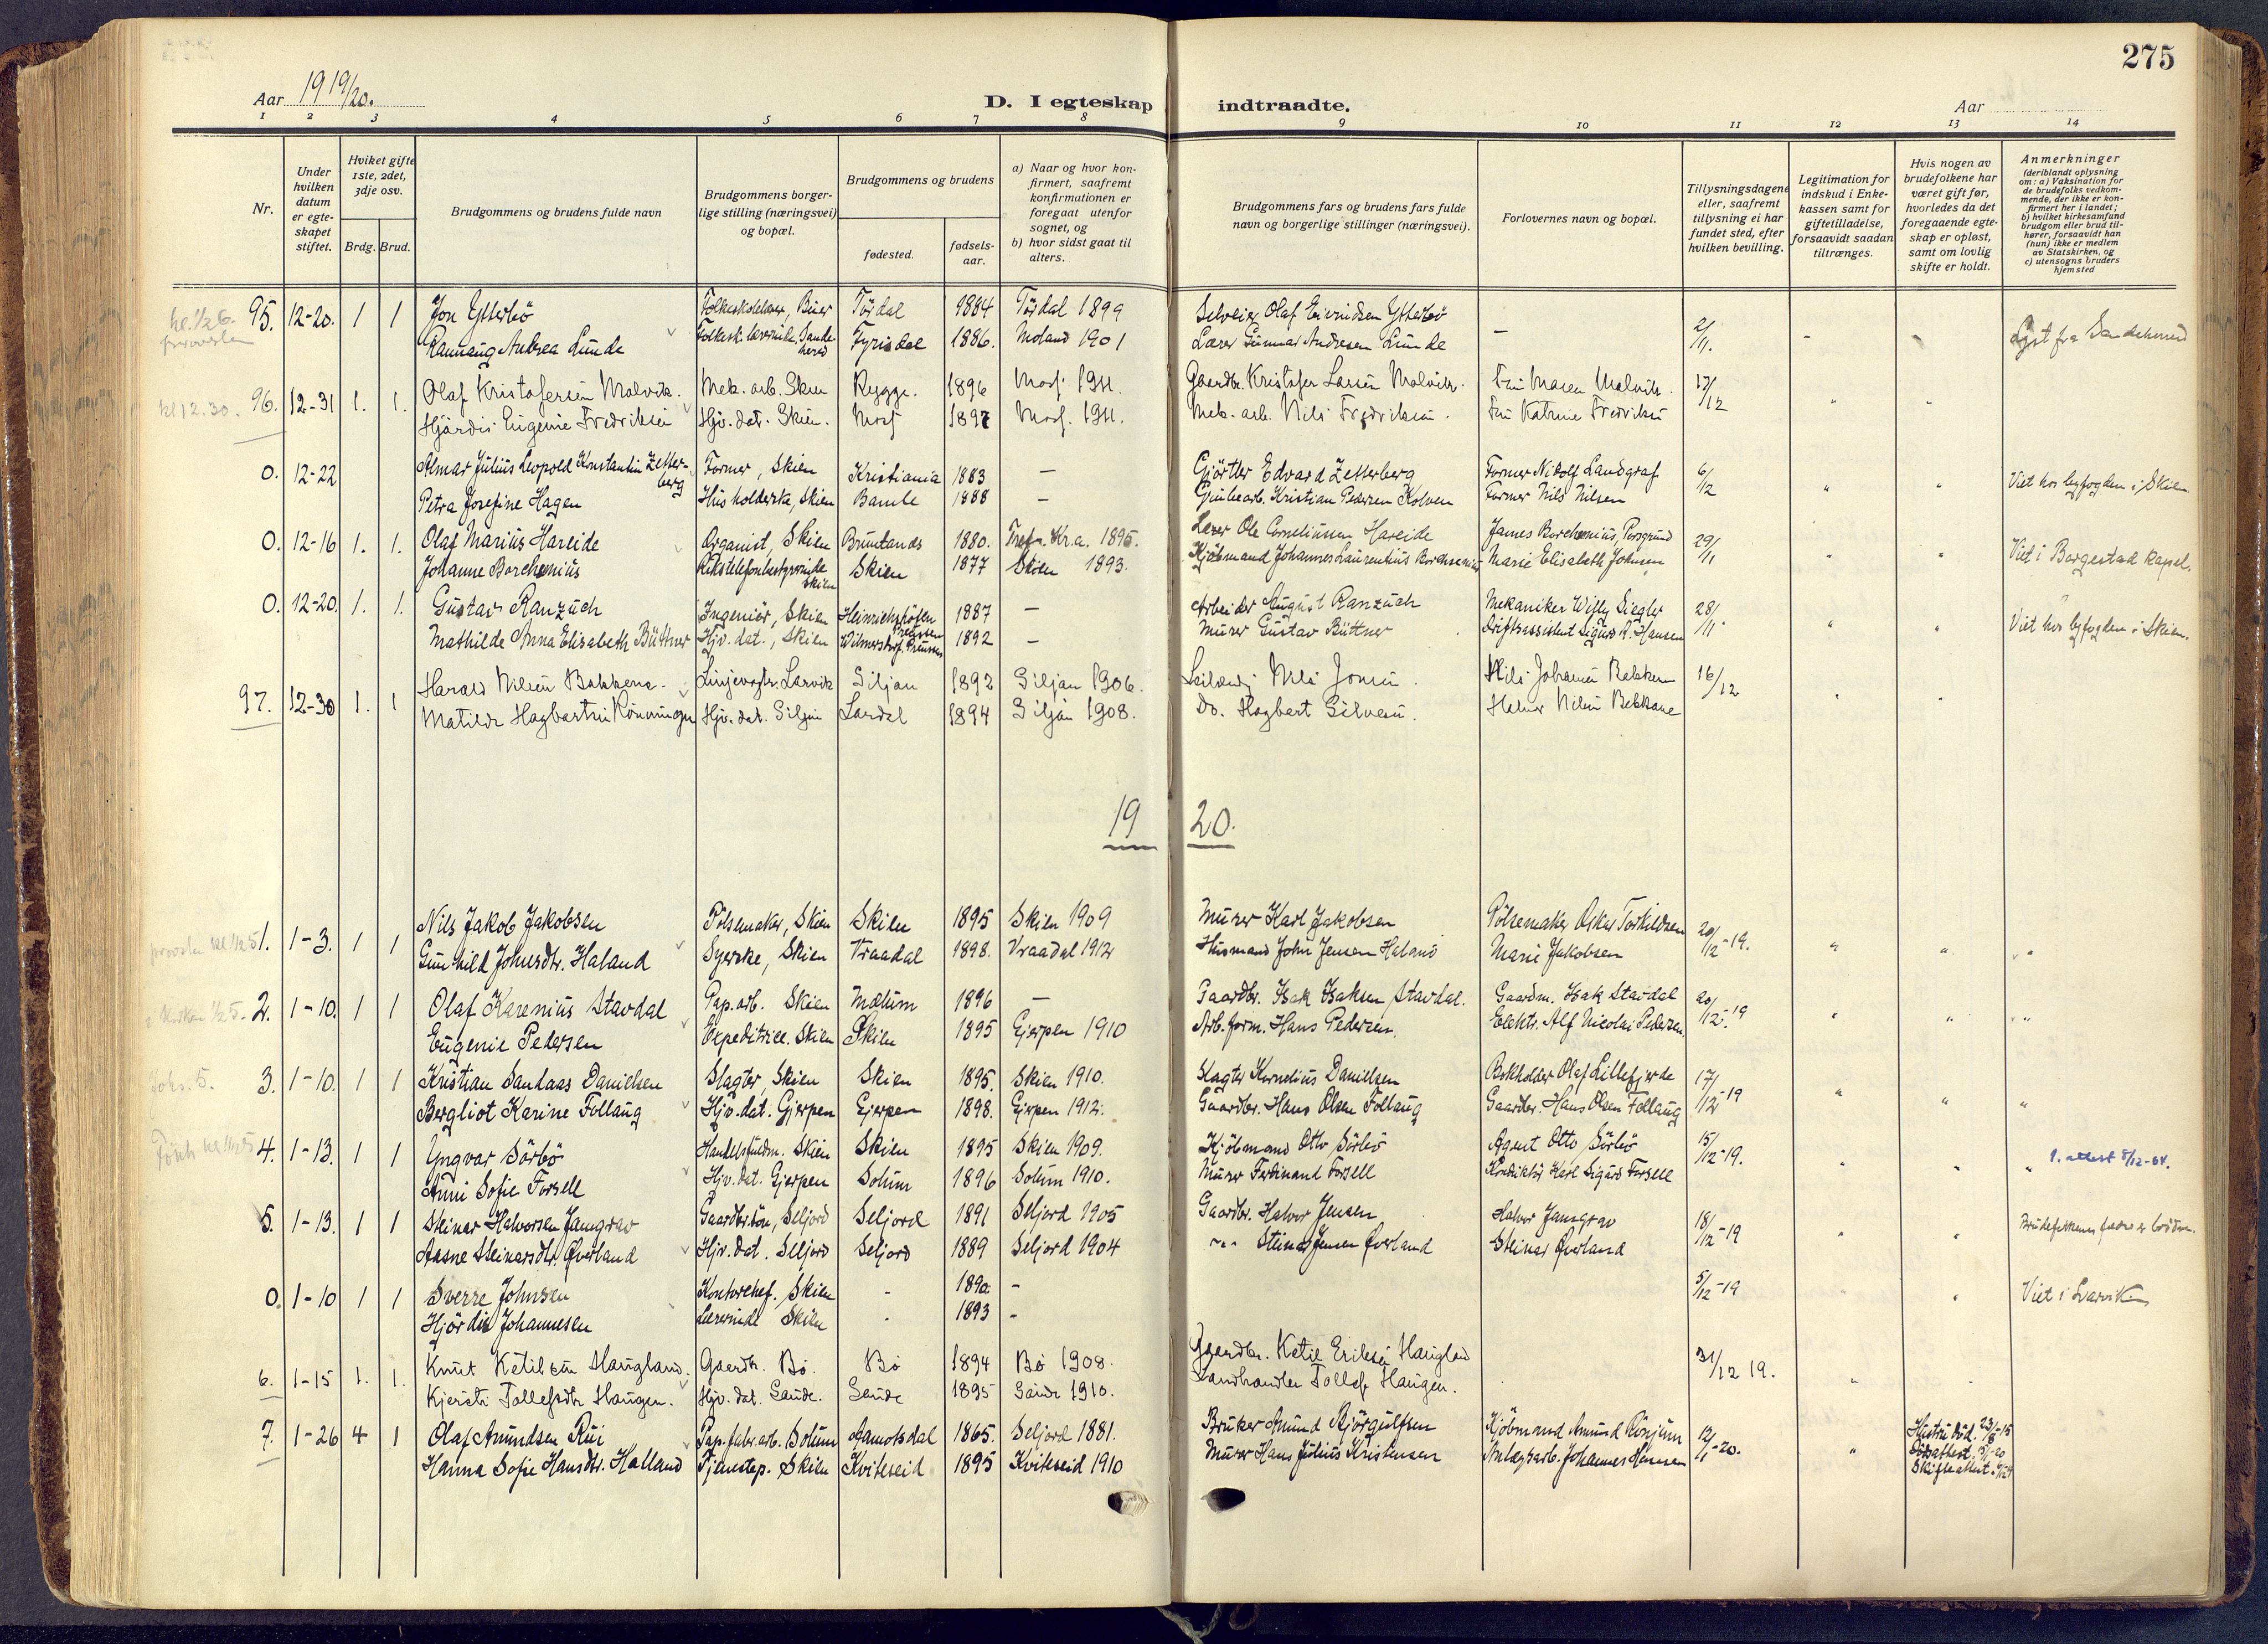 275
Aar 1919/20.
D. I egteskap indtraadte.
Aar
1 2 3 4 5 6 7 8 9 10 11 12 13 14
Nr.
Under hvilken datum er egteskapet stiftet.
Hviket gifte 1ste, 2det, 3dje osv.
Brdg. Brud.
Brudgommens og brudens fulde navn
Brudgommens borgerlige stilling (næringsvei) og bopæl.
Brudgommens og brudens
fødested. fødselsaar.
a) Naar og hvor konfirmert, saafremt konfirmationen er foregaat utenfor sognet, og
b) hvor sidst gaat til alters.
Brudgommens fars og brudens fars fulde navn og borgerlige stillinger (næringsvei).
Forlovernes navn og bopæl.
Tillysningsdagene eller, saafremt tillysning ei har fundet sted, efter hvilken bevilling.
Legitimation for indskud i Enkekassen samt for giftetilladelse, forsaavidt saadan tiltrænges.
Hvis nogen av brudefolkene har været gift før, hvorledes da det foregaaende egteskap er opløst, samt om lovlig skifte er holdt.
Anmerkninger (deriblandt oplysning om: a) Vaksination for de brudefolks vedkommende, der ikke er konfirmert her i landet; b) hvilket kirkesamfund brudgom eller brud tilhører, forsaavidt han (hun) ikke er medlem av Statskirken, og c) utensogns bruders hjemsted
95. 12-20. 1 1 Jon Ytterbö Folkeskolelærer, Tördal 1884 Tördal 1899 Selveier Olaf Eivindsen Ytterbö - 2/11. -
Rannaug Andrea Lunde Folkesk. lærerinde, Sandeherred Fyrisdal 1886. Moland 1901 Lærer Gunnar Andresen Lunde Lyst fra Sandeherred
kl 12.30. 96. 12-31 1. 1. Olaf Kristofersen Malvik. Mek. arb. Skien Rygge. 1896 Moss 1911. Gaardbr. Kristofer Larsen Malvik. Fru Maren Malvik. 17/12 " "
Hjördis Eugenie Fredriksen Hjv. dat. Skien. Moss 1897 Moss. 1911. Mek. arb. Nils Fredriksen. Fru Katrine Fredriksen
0. 12-22 Almar Julius Leopold Konstantin Zetterberg Former, Skien Kristiania 1883 - Gjörtler Edvard Zetterberg Former Nikolf Landgraf 6/12 " " Viet hos byfogden i Skien
Petra Josefine Hagen Husholderske, Skien Bamle 1888 - Grubearb. Kristian Pedersen Kolven Former Nils Nilsen
0. 12-16 1. 1. Olaf Marius Hareide Organist, Skien Brunlanæs 1880. Tref. Kr.a. 1895. Lærer Ole Corneliussen Hareide James Borchsenius, Porsgrund 29/11 " " Viet i Borgestad kapel.
Johanne Borchsenius Rikstelefonbestyrerinde Skien Skien 1877 Skien 1893. Kjöbmand Johannes Laurentius Borchsenius Marie Elisabeth Johnsen
0. 12-20. 1. 1. Gustav Ranzuch Ingeniör, Skien Heinrichshöfen Preussen 1887 - Arbeider August Ranzuch Mekaniker Willy Siegler 28/11 " " Viet hos byfogden i Skien.
Mathilde Anna Elisabeth Büttner Hjv. dat., Skien Wilmersdorf. Preussen 1892 - Murer Gustav Büttner Driftsassistent Sigurd R. Hansen
97. 12-30 1. 1 Harald Nilsen Bakkene. Linjevogter. Larvik Siljan 1892 Siljan 1906. Nils Jonsen. Nils Johansen Bakken 16/12 " "
Matilde Hagbartsen Rönningen Hjv. dat. Siljan Lardal 1894 Siljan 1908. Do. Hagbart Gilvesen. Halvor Nilsen Bakkane
1920.
1. 1-3. 1 1 Nils Jakob Jakobsen Pölsemaker, Skien Skien 1895 Skien 1909 Murer Karl Jakobsen Pölsemaker Oskar Torkildsen 20/12-19. " " "
Gunhild Johnsdtr. Haland Syerske, Skien Vraadal 1898. Vraadal 1912 Husmand John Jensen Haland Marie Jakobsen
2. 1-10. 1 1 Olaf Karenius Stavdal Pap. arb. Skien Mælum 1896 - Gaardbr. Isak Isaksen Stavdal. Gaardm. Isak Stavdal 20/12-19 " " "
Eugenie Pedersen Expeditrice. Skien Skien 1895 Gjerpen 1910 Arb. form. Hans Pedersen. Elektr. Alf Nicolai Pedersen.
Johs. 5. 3. 1-10. 1 1 Kristian Sandaas Danielsen Slagter, Skien Skien 1895. Skien 1910. Slagter Kornelius Danielsen Bokholder Olaf Lillefjerde 17/12-19 " " "
Bergliot Karine Follaug Hjv. dat. Gjerpen Gjerpen 1898. Gjerpen 1912. Gaardbr. Hans Olsen Follaug Gaardbr. Hans Olsen Follaug
4. 1-13. 1 1 Yngvar Sörbö Handelsfuldm. Skien Skien 1895 Skien 1909. Kjöbmand Otto Sörbö Agent Otto Sörbö 15/12-19. " " " 1. attest 8/12-64.
Anni Sofie Forsell Hjv. dat. Gjerpen Solum 1896 Solum 1910. Murer Ferdinand Forsell Konduktör Karl Sigurd Forsell
5. 1-13. 1 1 Steinar Halvorsen Jamgrav Gaardbr. sön, Seljord Seljord 1891 Seljord 1905 Gaardbr. Halvor Jensen Halvor Jamgrav 18/12-19 " " Brudefolkenes fædre er brödre.
Aasne Steinarsdtr. Øverland Hjv. dat. Seljord Seljord 1889 Seljord 1904 " Steinar Jensen Øverland Steinar Øverland
0. 1-10 1 1 Sverre Johnsen Kontorchef. Skien - 1890. - 5/12-19 " Viet i Larvik
Hjördis Johannesen Lærerinde Skien - 1893 -
6. 1-15 1. 1. Knut Ketilsen Haugland. Gaardbr. Bö. Bö 1894 Bö 1908. Gaardbr. Ketil Eriksen Haugland 31/12 19. "
Kjersti Tollefsdtr Haugen. Hjv. dat. Saude. Saude 1895 Saude 1910. Landhandler Tollef Haugen.
7. 1-26 4 1 Olaf Amundsen Rui Pap. fabr. arb. Solum Aamotsdal 1865. Seljord 1881. Bruker Amund Bjørgulfsen Kjöbmand Amund Rönjum 12/1-20. " Hustru död. 23/8-15
Hanna Sofie Hansdtr. Halland Tjenstep. Skien Kviteseid 1895 Kviteseid 1910 Murer Hans Julius Kristensen Anlægsarb. Johannes Hansen Skifteattest.